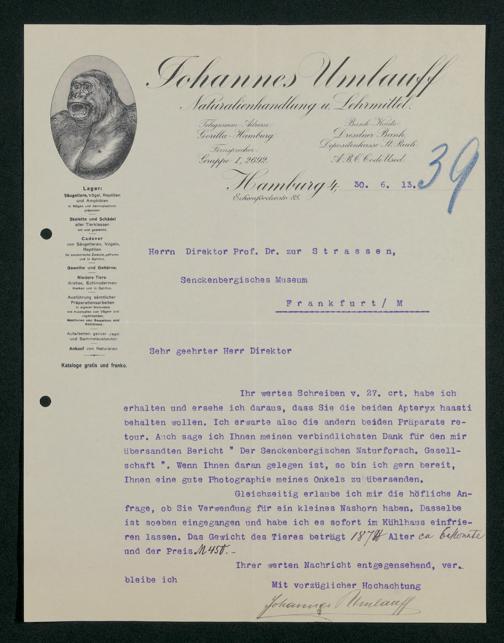 Johannes Umlauff
Naturalienhandlung u. Lehrmittel.
Telegramm-Adresse:
Gorilla-Hamburg
Fernsprecher:
Gruppe 1, 2692.
Bank-Konto:
Dresdner Bank
Depositenkasse St. Pauli.
A.B.C. Code Used.
Hamburg 4, 30. 6. 13.
39
Lager:
Säugetiere, Vögel, Reptilien
und Amphibien
Skelette und Schädel
aller Tierklassen
Cadaver
von Säugetieren, Vögeln,
Reptilien
Geweihe und Gehörne.
Niedere Tiere
Krebse, Echinodermen
Ausführung sämtlicher
Präparationsarbeiten
Aufarbeiten ganzer Jagd-
und Sammelausbeuten
Ankauf von Naturalien
Kataloge gratis und franko.
Herrn Direktor Prof. Dr. zur S t r a s s e n,
Senckenbergisches Museum
F r a n k f u r t / M
Sehr geehrter Herr Direktor
Ihr wertes Schreiben v. 27. crt. habe ich
erhalten und ersehe ich daraus, dass Sie die beiden Apteryx haasti
behalten wollen. Ich erwarte also die andern beiden Präparate re-
tour. Auch sage ich Ihnen meinen verbindlichsten Dank für den mir
übersandten Bericht " Der Senckenbergischen Naturforsch. Gesell-
schaft ". Wenn Ihnen daran gelegen ist, so bin ich gern bereit,
Ihnen eine gute Photographie meines Onkels zu übersenden.
Gleichzeitig erlaube ich mir die höfliche An-
frage, ob Sie Verwendung für ein kleines Nashorn haben. Dasselbe
ist soeben eingegangen und habe ich es sofort im Kühlhaus einfrie-
ren lassen. Das Gewicht des Tieres beträgt 187 Alter ca 6 Monate
und der Preis M 450.-
Ihrer werten Nachricht entgegensehend, ver-
bleibe ich
Mit vorzüglicher Hochachtung
Johannes Umlauff